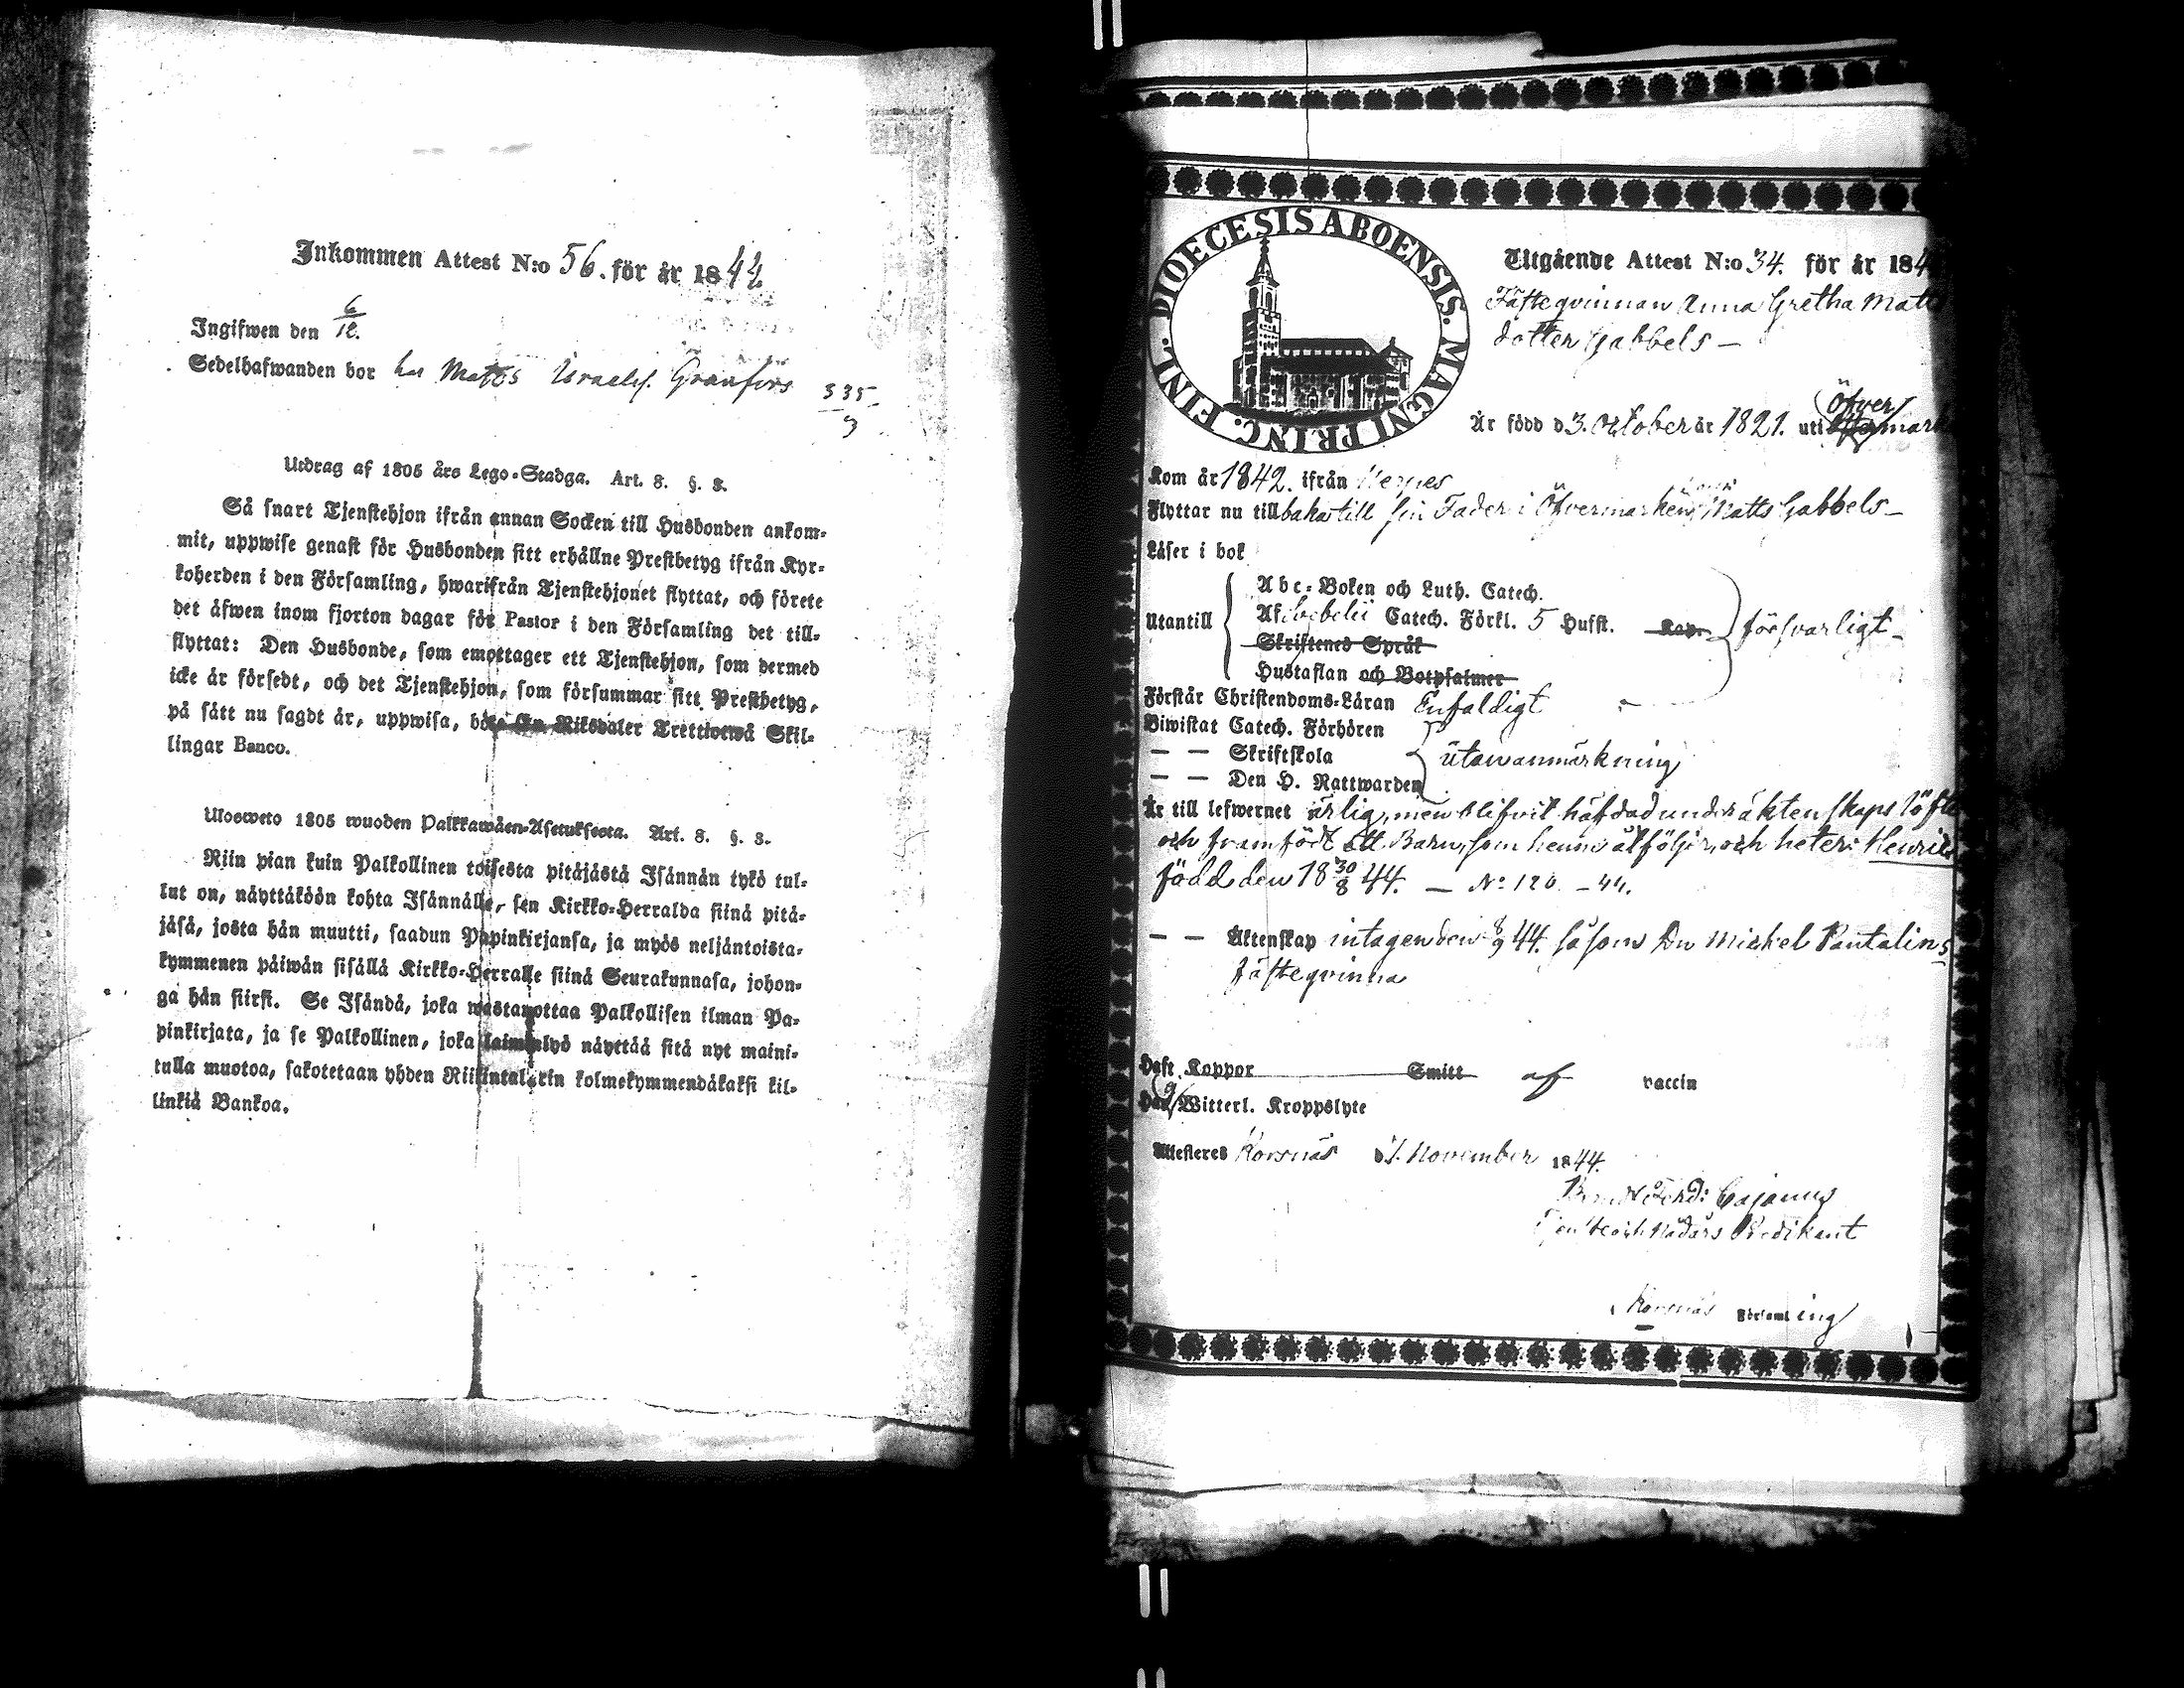 Inkommen Attest N:o 56. för år 1844
Ingifwen den 6/12.
Sedelhafwanden bor hos Matts Israelss. Granfors 335
9
Utdrag af 1805 års Lego-Stadga. Art. 8. §. 8.
Så snart Tjenstehjon ifrån annan Socken till Husbonden ankom-
mit, uppwise genast för Husbonden sitt erhållne Prestbetyg ifrån Kyr-
koherden i den Församling, hwarifrån Tjenstehjonet flyttat, och förete
det äfwen inom fjorton dagar för Pastor i den Församling det till-
flyttat: Den Husbonde, som emottager ett Tjenstehjon, som dermed
icke är försedt, och det Tjenstehjon, som försummar sitt Prestbetyg,
på sätt nu sagdt är, uppwisa, böte En Riksdaler Trettiotwå Skil-
lingar Banco.
Ulosweto 1805 wuoden Palkkawäen-Asetuksesta. Art. 8. §. 8.
Niin pian kuin Palkollinen toisesta pitäjästä Isännän tykö tul-
lut on, näyttäköön kohta Isännälle, sen Kirkko-Herralda siinä pitä-
jäsä, josta hän muutti, saadun Papinkirjansa, ja myös neljäntoista-
kymmenen päiwän sisällä Kirkko-Herralle siinä Seurakunnasa, johon-
ga hän siirsi. Se Isändä, joka wastanottaa Palkollisen ilman Pa-
pinkirjata, ja se Palkollinen, joka laiminlyö näyttää sitä nyt maini-
tulla muotoa, sakotetaan yhden Riikintalarin kolmekymmendäkaksi kil-
linkiä Bankoa.
DIOECESIS ABOENSIS. MAGNI PRINC. FINL.
Utgående Attest N:o 34. för år 184
Fästeqvinnan Anna Gretha Matts
dotter Gabbels —
Är född d 3. October år 1821. uti Öfvermark
Kom år 1842. ifrån Nerpes
Flyttar nu tillbaka till sin Fader i Öfvermarken Matts Gabbels —
Läser i bok
Abc-Boken och Luth. Catech.
Utantill Af Svebelii Catech. Förkl. 5 Hufst. Kap. försvarligt
Skriftenes Språk
Hustaflan och Botpsalmer
Förstår Christendoms-Läran Enfaldigt
Biwistat Catech. Förhören
— — Skriftskola utan anmärkning
— — Den H. Nattwarden
Är till lefwernet ärlig, men blifvit häfdad under äktenskaps löfte
och framfödt ett Barn, som henne åtföljer, och heter: Henric
född den 18 30/8 44. — N:o 120. — 44.
— — Äktenskap intagen den 8/9 44. såsom Dr. Mickel Pantalins
fästeqvinna
Haft Koppor Smitt af vaccin
Har Witterl. Kroppslyte
Attesteras Korsnäs d 1. November 1844.
Bernd Ferd: Cajanus
Tjenst och Nådårs Predikant
Korsnäs Församling